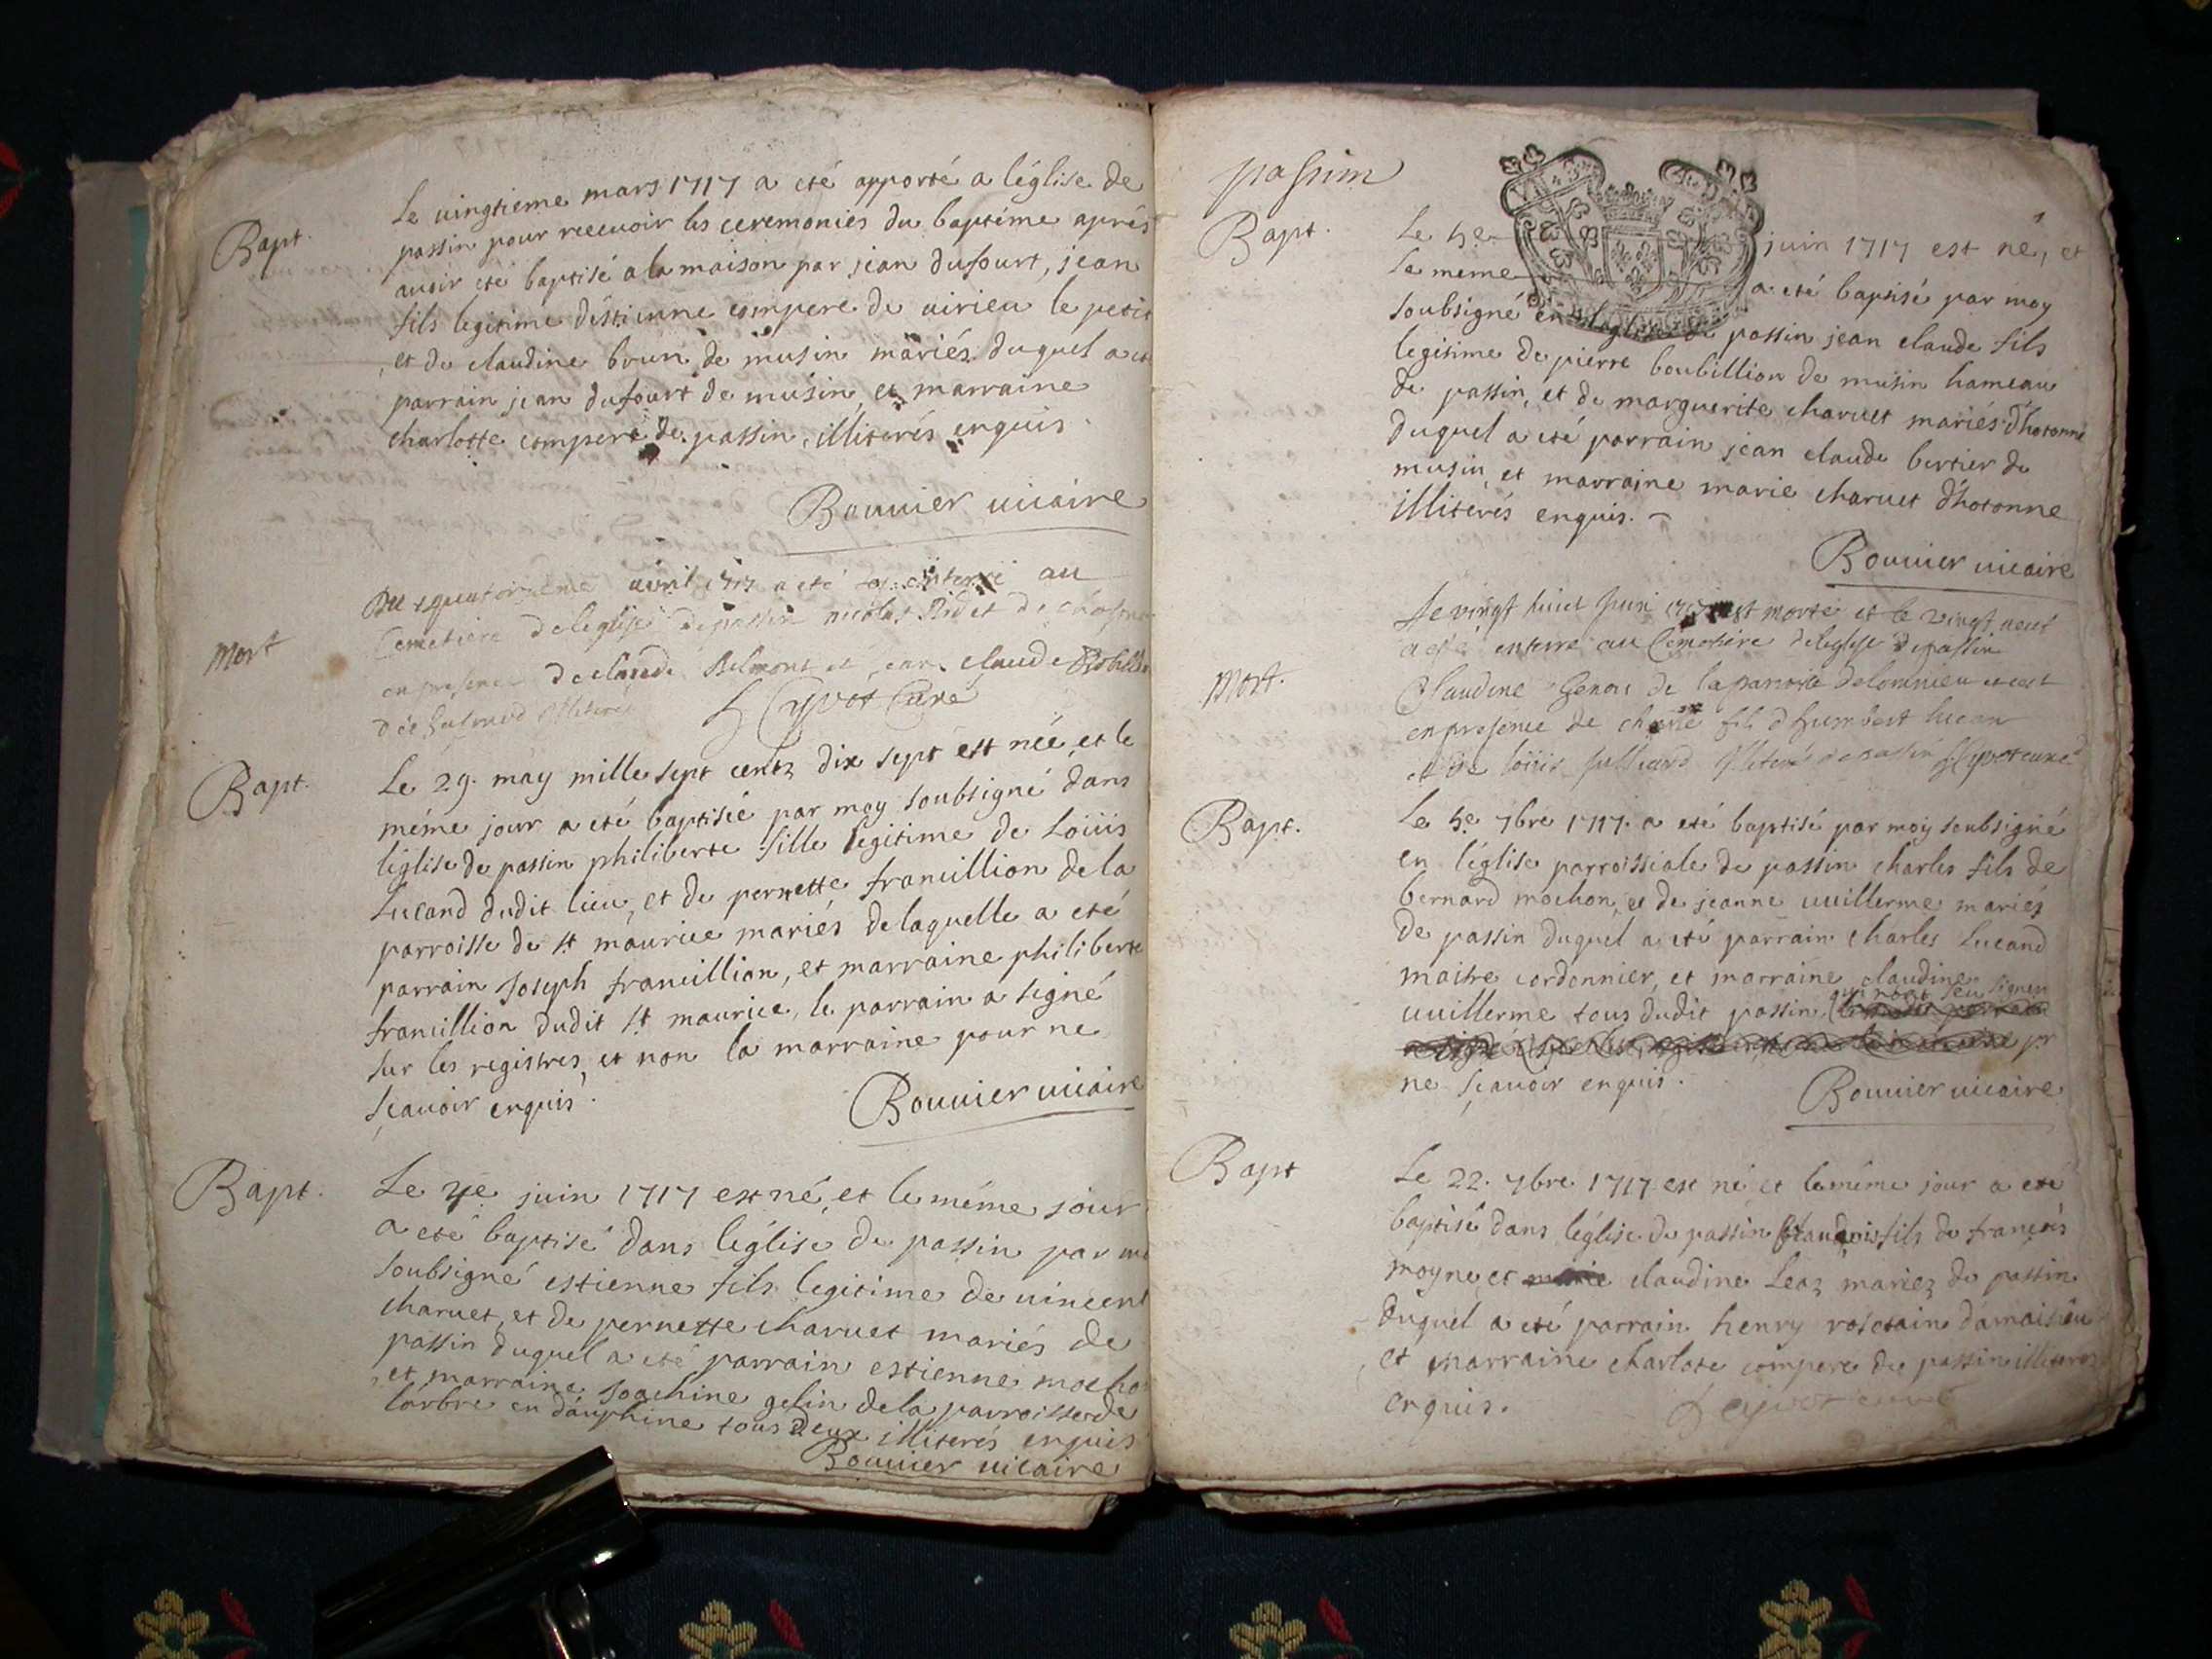 Bapt.
Le uingtieme mars 1717 a eté apporté a léglise de
passin pour receuoir les ceremonies du baptéme aprés
auoir eté baptisé a la maison par jean dufourt, jean
fils legitime déstienne compere de uirieu le petit
et de claudine brun de musin mariés duquel a eté
parrain jean dufourt de musin, et marraine
charlotte compere de passin, illiterés enquis.
Bouuier uicaire
Mort
quatorzieme auril 1717 a eté enterré au
Cemetiere de leglise de passin nicolas
en presence de claude Belmont et jean claude
Cure
Bapt.
Le 29. may mille sept centz dix sept est née, et le
méme jour a eté baptisée par moy soubsigné dans
léglise de passin philiberte fille legitime de Loüis
Lucand dudit lieu, et de pernette francillion de la
parroisse de st maurice mariés de laquelle a eté
parrain Joseph francillion, et marraine philiberte
francillion dudit st maurice, le parrain a signé
sur les registres, et non la marraine pour ne
sçauoir enquis.
Bouuier uicaire
Bapt.
Le juin 1717 est né, et le méme jour
a eté baptisé dans léglise de passin par
soubsigné estienne fils legitime de uincent
charuet, et de pernette charuet mariés de
passin duquel a eté parrain estienne
et marraine Joachine gelin de la parroisse de
lárbre en dauphine tous deux illiterés enquis
Bouuier uicaire
passim
Bapt.
Le 5e juin 1717 est né, et
le meme a eté baptisé par moy
soubsigné en passin jean claude fils
legitime de pierre boubillion de musin hameau
de passin, et de marguerite charuet mariés d'hotonne
duquel a eté parrain jean claude bertier de
musin, et marraine marie charuet d'hotonne
illiterés enquis.
Bouuier uicaire
Mort.
Le vingt huict Juin 1717 est morte et le vingt neuf
a esté enterre au Cemetiere de leglise de passin
Claudine de la parroisse
en presence de fils d'humbert lucan
et de loüis
Bapt.
Le 5e 7bre 1717. a eté baptisé par moy soubsigné
en léglise parroissiale de passin charles fils de
bernard mochon, et de jeanne uuillerme mariés
de passin duquel a eté parrain charles Lucand
maitre cordonnier, et marraine claudine
uuillerme tous dudit passin qui n'ont sceu signer
pr
ne sçauoir enquis.
Bouuier uicaire
Bapt
Le 22. 7bre 1717 est né et leméme jour a eté
baptisé dans léglise de passin fils de francois
moyne, et claudine Leaz mariez de passin
duquel a eté parrain henry
et marraine charlote compere de passin illiteres
enquis.